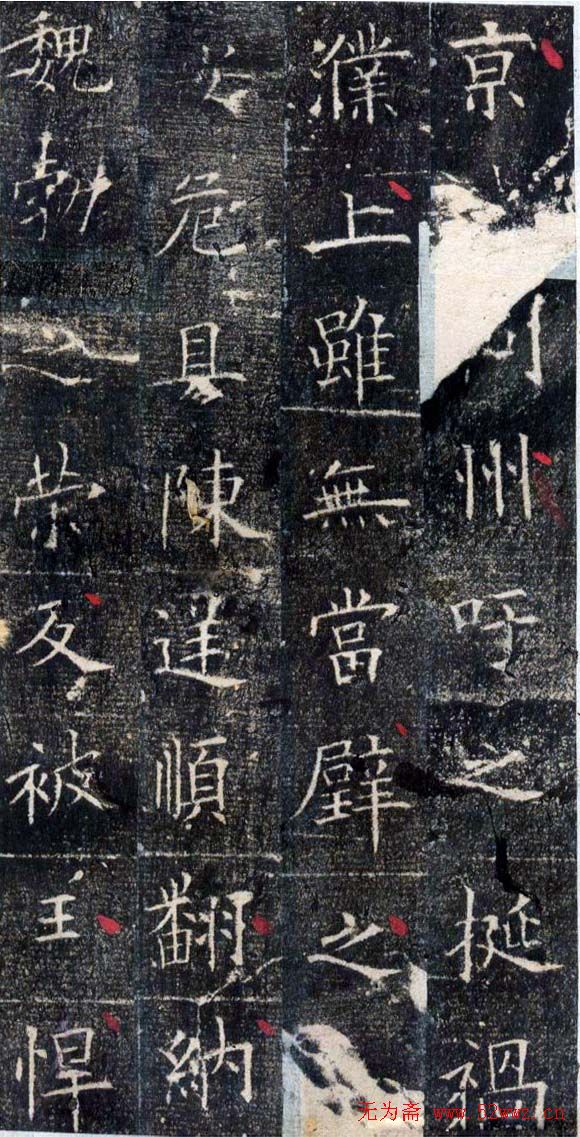 亰州吁之挺禍
濮上雖無當璧之
危具陳逆順翻納
魏勃之榮反被王悍
无为斋 www.52wwz.cn